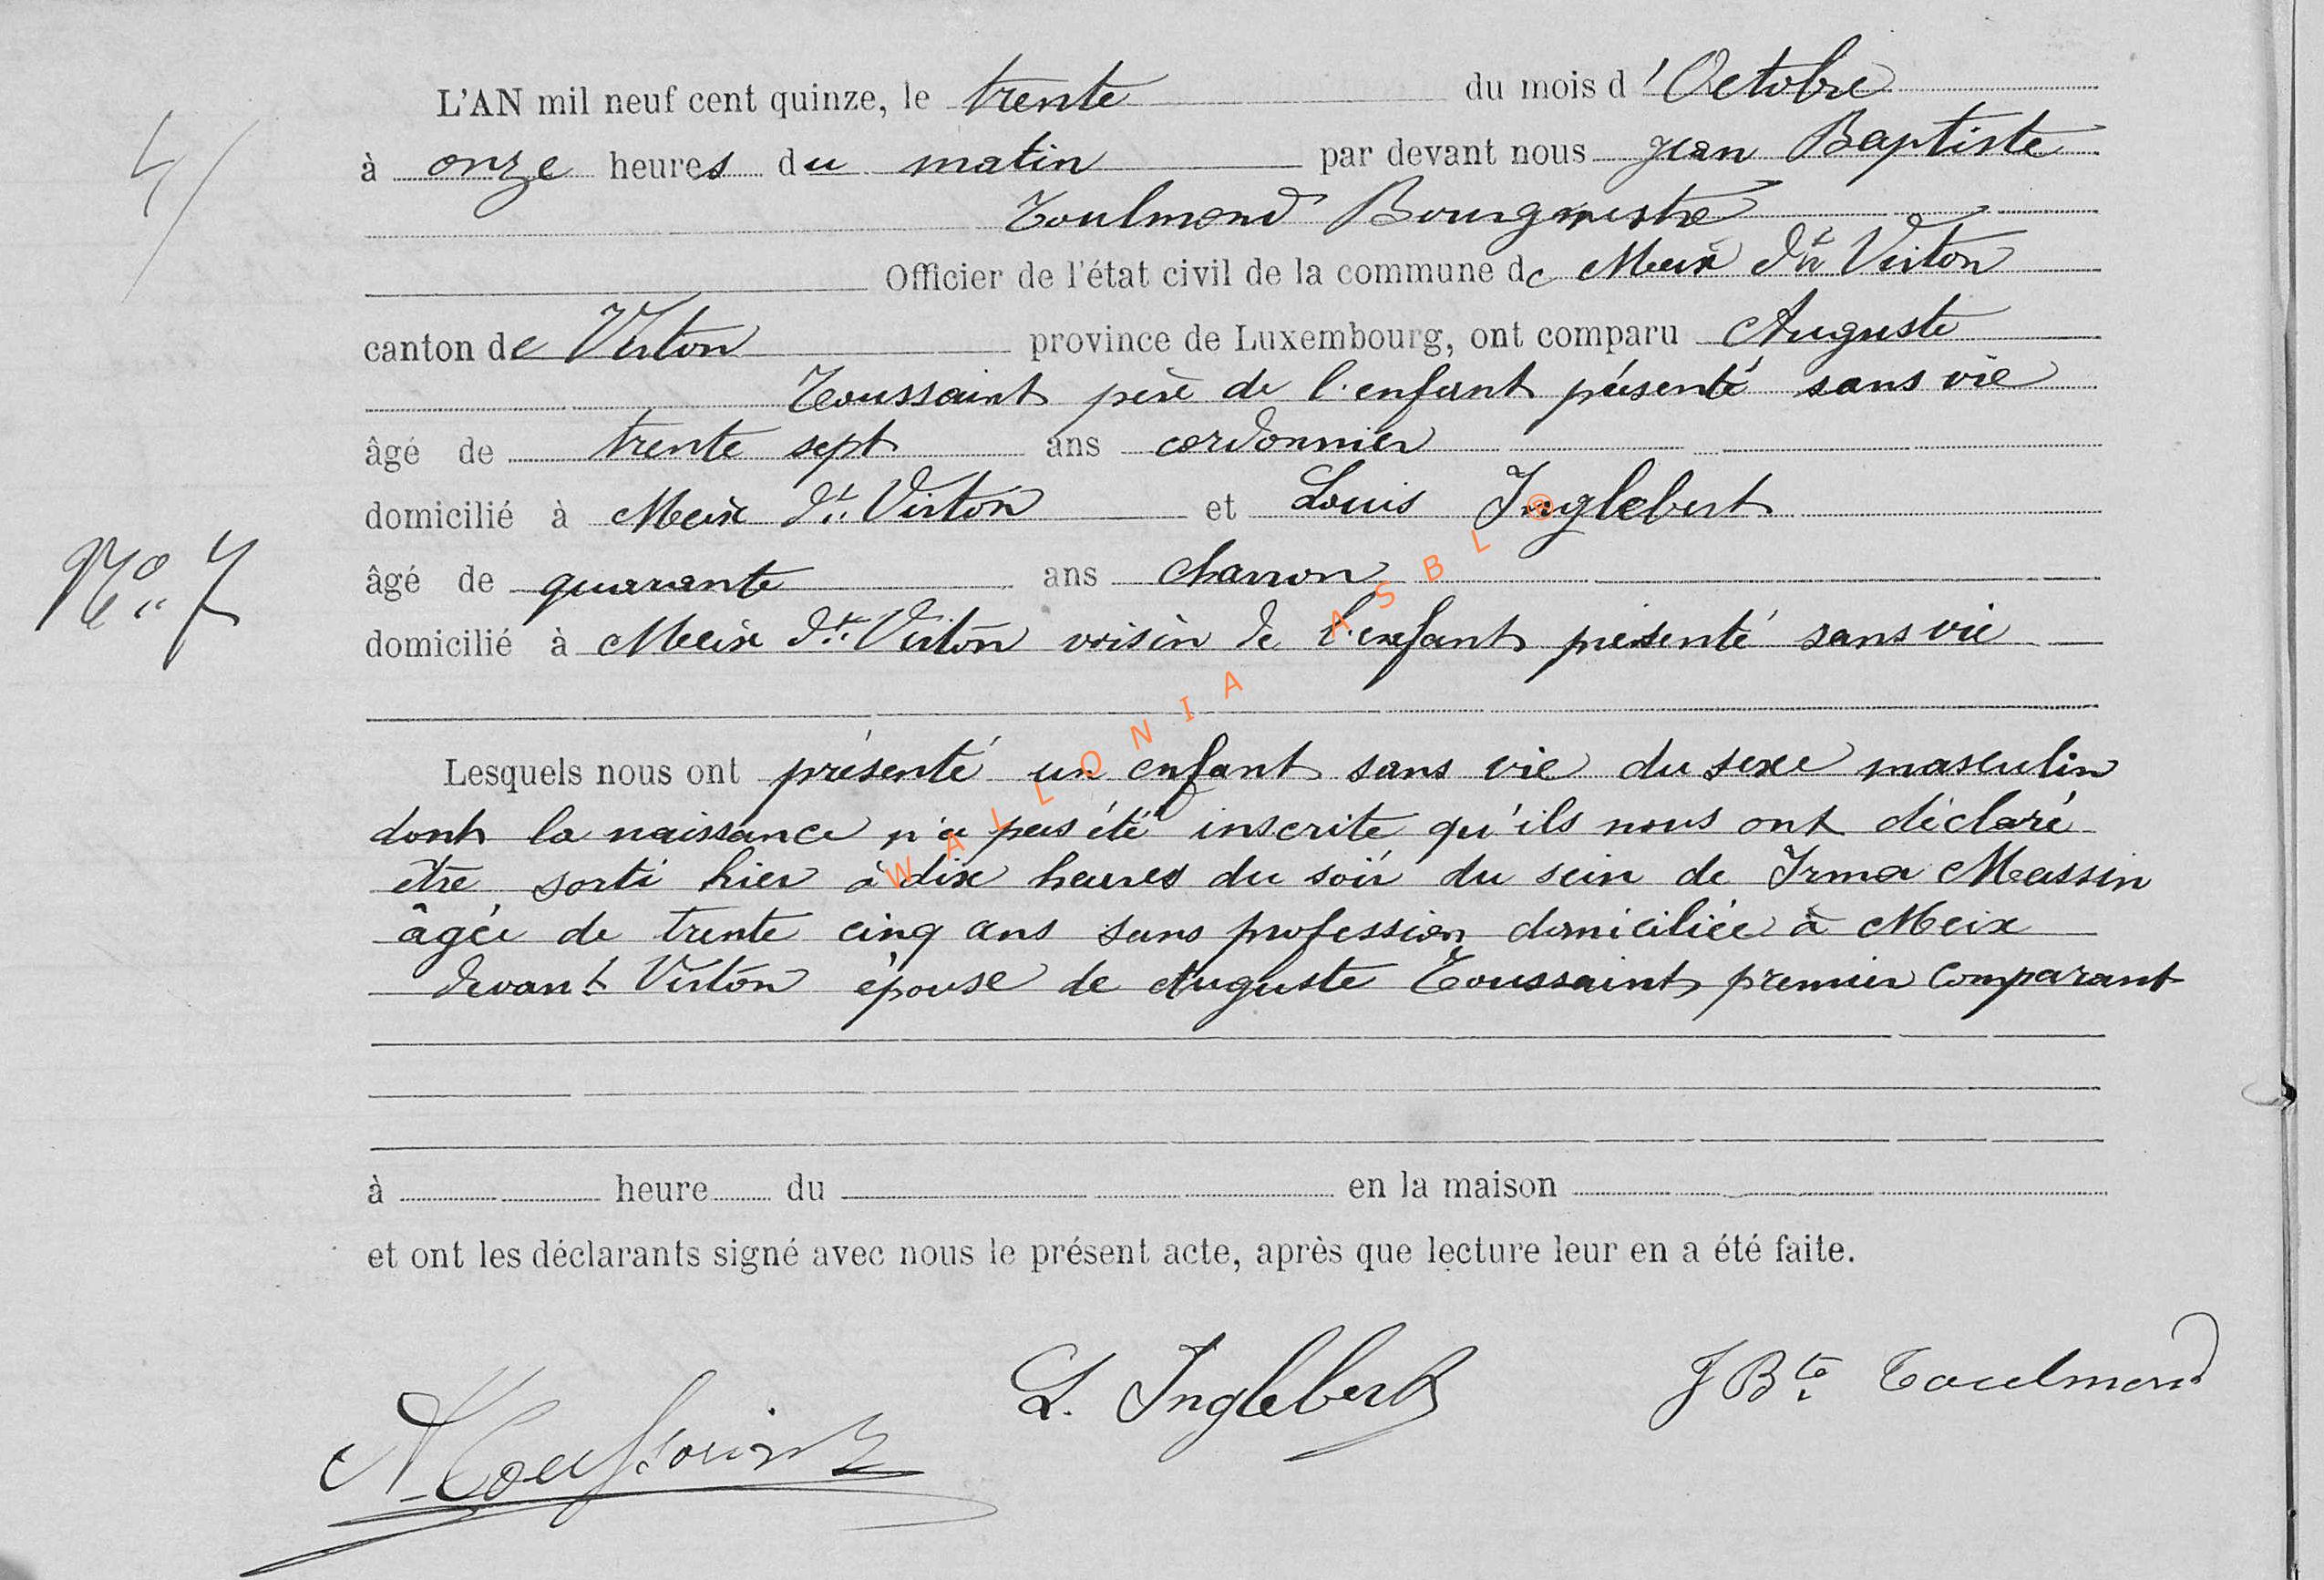 L'AN mil neuf cent quinze, le trente du mois d'Octobre
à onze heures du matin par devant nous Jean Baptiste
Toulmond Bourgmestre
Officier de l'état civil de la commune de Meix dt Virton
canton de Virton province de Luxembourg, ont comparu Auguste
Toussaint père de l'enfant présenté sans vie
âgé de trente sept ans cordonnier
domicilié à Meix dt Virton et Louis Inglebert
No 7
âgé de quarante ans charron
domicilié à Meix dt Virton voisin de l'enfant présenté sans vie
Lesquels nous ont présenté un enfant sans vie du sexe masculin
dont la naissance n'a pas été inscrite qu'ils nous ont déclaré
être sorti hier à dix heures du soir du sein de Irma Massin
âgée de trente cinq ans sans profession domiciliée à Meix
devant Virton épouse de Auguste Toussaint premier comparant
à heure du en la maison
et ont les déclarants signé avec nous le présent acte, après que lecture leur en a été faite.
A Toussaint L. Inglebert J Bte Toulmond
WALLONIA ASBL ®